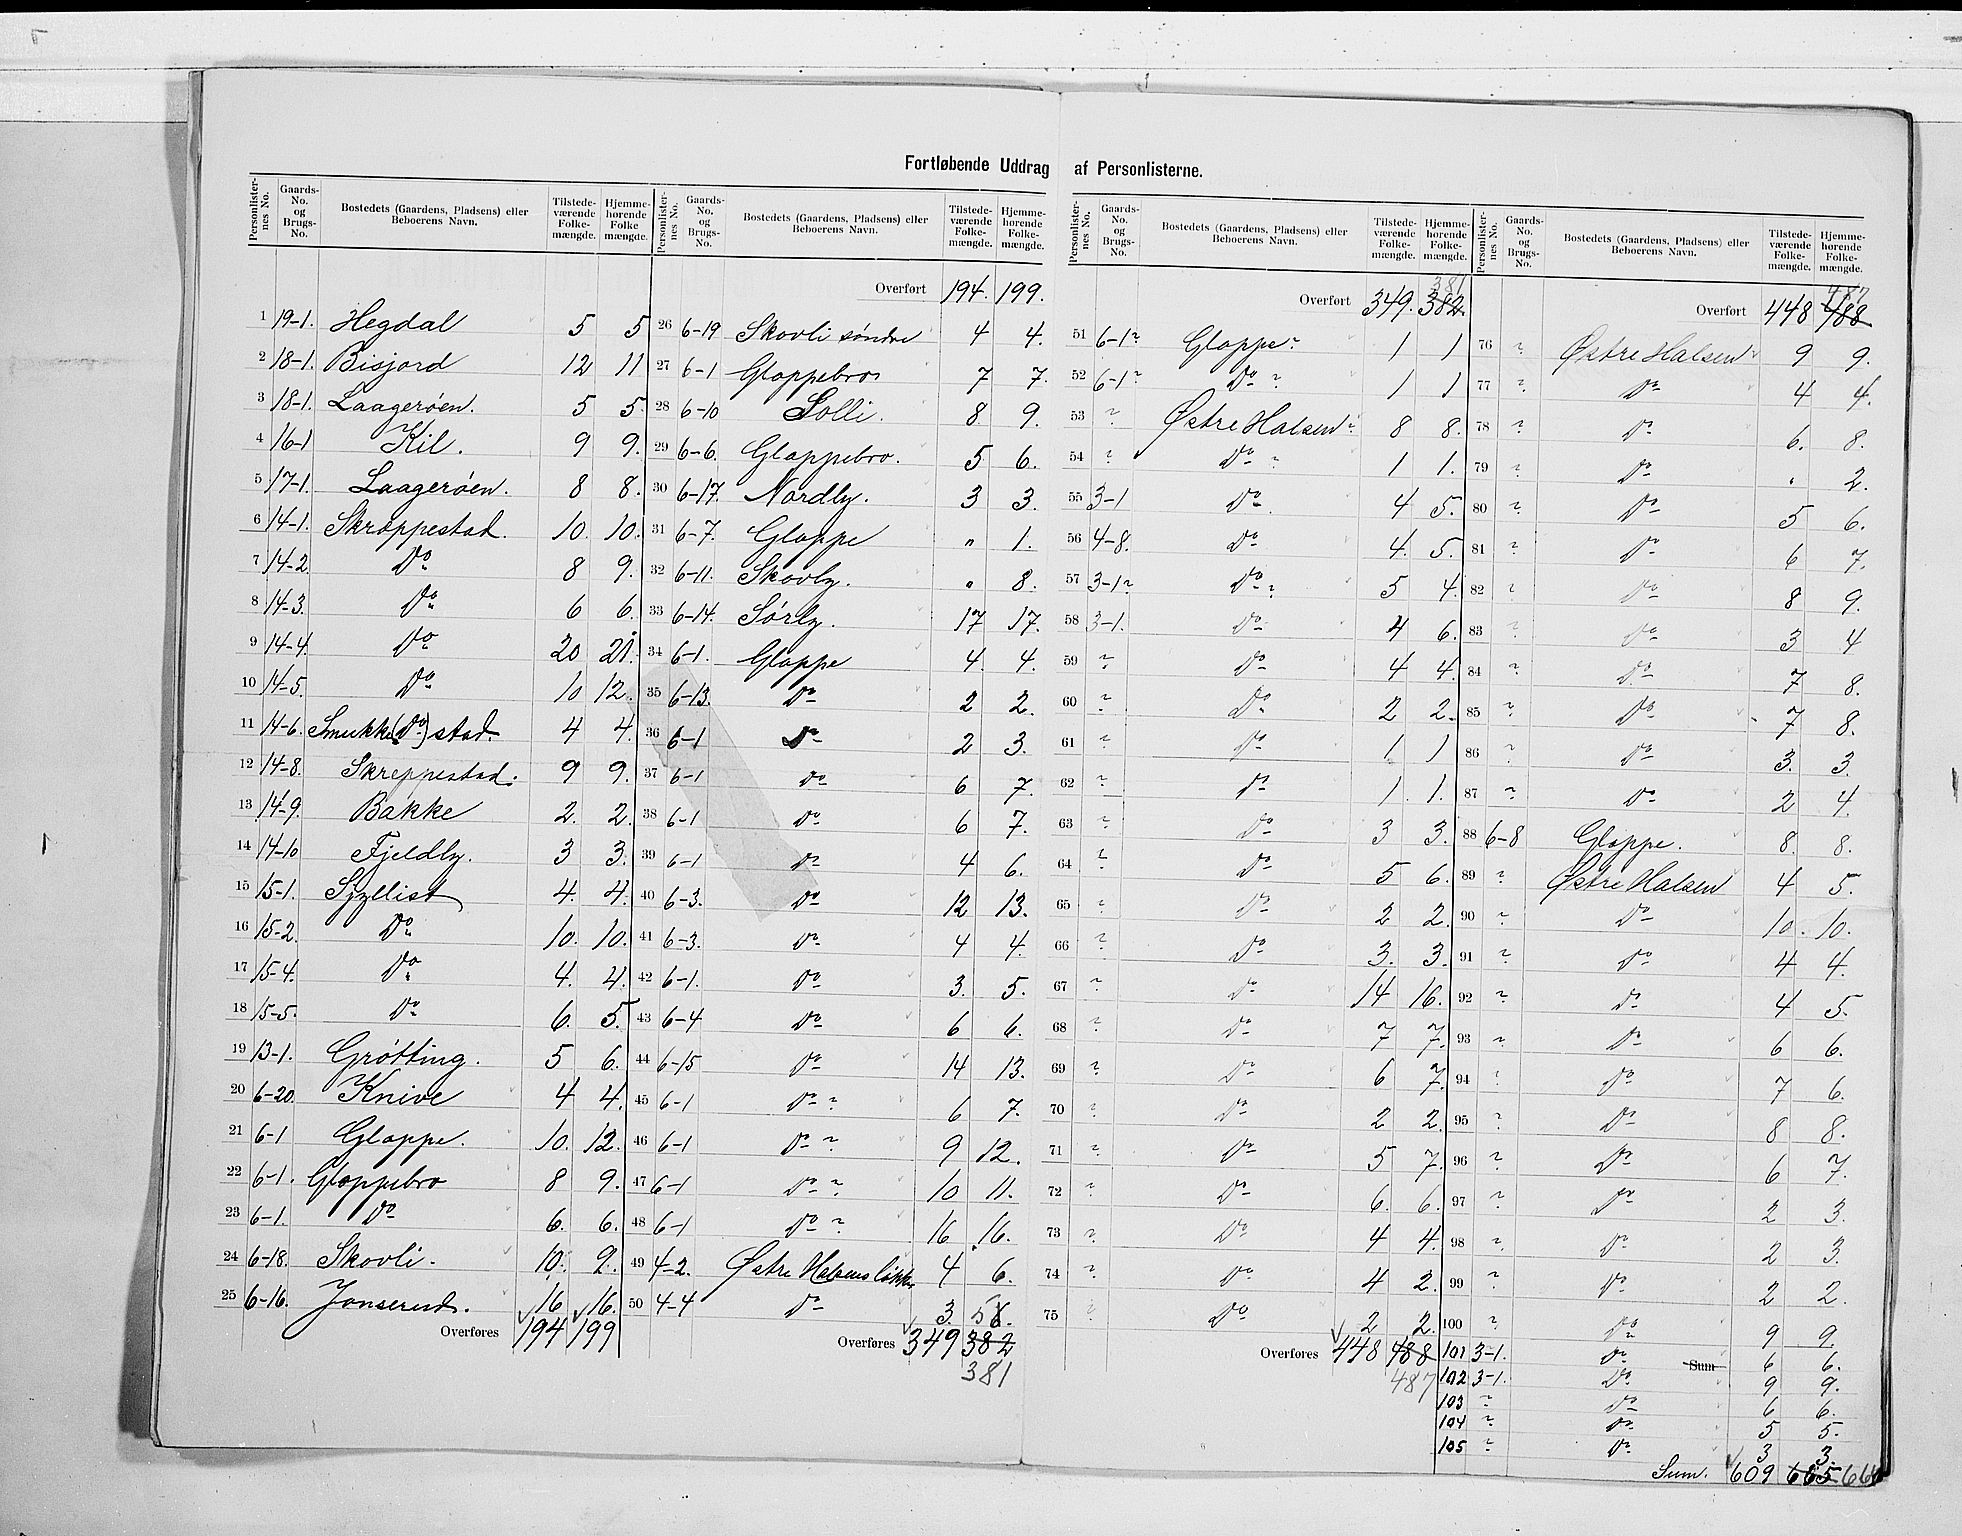 Fortløbende Uddrag af Personlisterne.
Personlister-nes No. | Gaards-No. og Brugs-No. | Bostedets (Gaardens, Pladsens) eller Beboerens Navn. | Tilstede-værende Folke-mængde. | Hjemme-hørende Folke mængde.
1 19-1. Hegdal 5 5
2 18-1. Bisjord 12 11
3 18-1. Laagerøen. 5 5.
4 16-1 Kil. 9 9.
5 17-1. Laagerøen. 8 8.
6 14-1. Skreppestad. 10. 10.
7 14-2. Do 8 9.
8 14-3. Do 6 6.
9 14-4. Do 20 21.
10 14-5. Do 10 12.
11 14-6. Smukke(Do)stad. 4 4.
12 14-8. Skreppestad. 9 9.
13 14-9. Bakke 2. 2.
14 14-10 Fjeldby. 3 3.
15 15-1. Syllist 4. 4.
16 15-2. Do 10. 10.
17 15-4. Do 4. 4.
18 15-5. Do 6. 5.
19 13-1. Grøtting. 5 6.
20 6-20. Knive 4 4.
21 6-1 Gloppe. 10. 12.
22 6-1. Gloppebro 8 9.
23 6-1. Do 6. 6.
24 6-18. Skovli. 10. 9.
25 6-16. Jonserud. 16 16.
Overføres 194 199
Personlister-nes No. | Gaards-No. og Brugs-No. | Bostedets (Gaardens, Pladsens) eller Beboerens Navn. | Tilstede-værende Folke-mængde. | Hjemme-hørende Folke-mængde.
Overført 194. 199.
26 6-19 Skovli søndre 4 4.
27 6-1 Gloppebro 7 7.
28 6-10 Solli. 8. 9.
29 6-6. Gloppebro. 5 6.
30 6-17. Nordby. 3 3.
31 6-7. Gloppe " 1.
32 6-11. Skovby. " 8.
33 6-14. Sørby. 17 17.
34 6-1. Gloppe 4. 4.
35 6-13. Do 2 2.
36 6-1 Do 2 3.
37 6-1 Do 6 7.
38 6-1 Do 6 7.
39 6-1 Do 4 6.
40 6-3. Do 12 13.
41 6-3. Do 4 4.
42 6-1. Do 3. 5.
43 6-4 Do 6 6.
44 6-15 Do 14 13.
45 6-1 Do ? 6 7.
46 6-1 Do ? 9 12.
47 6-1 Do ? 10 11.
48 6-1 Do ? 16 16.
49 4-2. Østre Halsens løkke 4 6.
50 4-4 Do 3. 5 6.
Overføres 349 382
381
Personlister-nes No. | Gaards-No. og Brugs-No. | Bostedets (Gaardens, Pladsens) eller Beboerens Navn. | Tilstede-værende Folke-mængde. | Hjemme-hørende Folke-mængde.
381
Overført 349. 382.
51 6-1? Gloppe? 1 1
52 6-1? Do ? 1 1
53 ? Østre Halsen? 8 8.
54 ? Do ? 1 1.
55 3-1 Do 4 5.
56 4-8. Do 4. 5.
57 3-1? Do ? 5 4.
58 3-1. Do 4 6.
59 ? Do 4 4.
60 ? Do 2 2.
61 ? Do 1 1
62 ? Do 1. 1.
63 ? Do 3 3.
64 ? Do 5 6.
65 ? Do 2 2.
66 ? Do 3. 3.
67 ? Do 14 16.
68 ? Do 7 7.
69 ? Do 6 7.
70 ? Do 2 2.
71 ? Do 5 7.
72 ? Do 6. 6.
73 ? Do 4 4.
74 ? Do 4 2.
75 ? Do 2 2.
Overføres 448 488
487
Personlister-nes No. | Gaards-No. og Brugs-No. | Bostedets (Gaardens, Pladsens) eller Beboerens Navn. | Tilstede-værende Folke-mængde. | Hjemme-hørende Folke-mængde.
487
Overført 448 488
76 ? Østre Halsen? 9 9.
77 ? Do 4 4.
78 ? Do 6. 8.
79 ? Do " 2.
80 ? Do 5 6.
81 ? Do 6 7.
82 ? Do 8 9.
83 ? Do 3 4
84 ? Do 7 8.
85 ? Do 7 8.
86 ? Do 3. 3.
87 ? Do 2 4.
88 6-8 Gloppe. 8. 8.
89 ? Østre Halsen 4 5.
90 ? Do 10. 10.
91 ? Do 4 4.
92 ? Do 4 5.
93 ? Do 6 6.
94 ? Do 7 6.
95 ? Do 8 8.
96 ? Do 6 7.
97 ? Do 2 3.
98 ? Do 2 3.
99 ? Do 2 2.
100 ? Do 9 9.
101 3-1. Do Sum 6 6.
102 3-1. Do 9 9.
103 ? Do 6 6.
104 ? Do 5 5.
105 ? Do 3 3.
Sum. 609 665